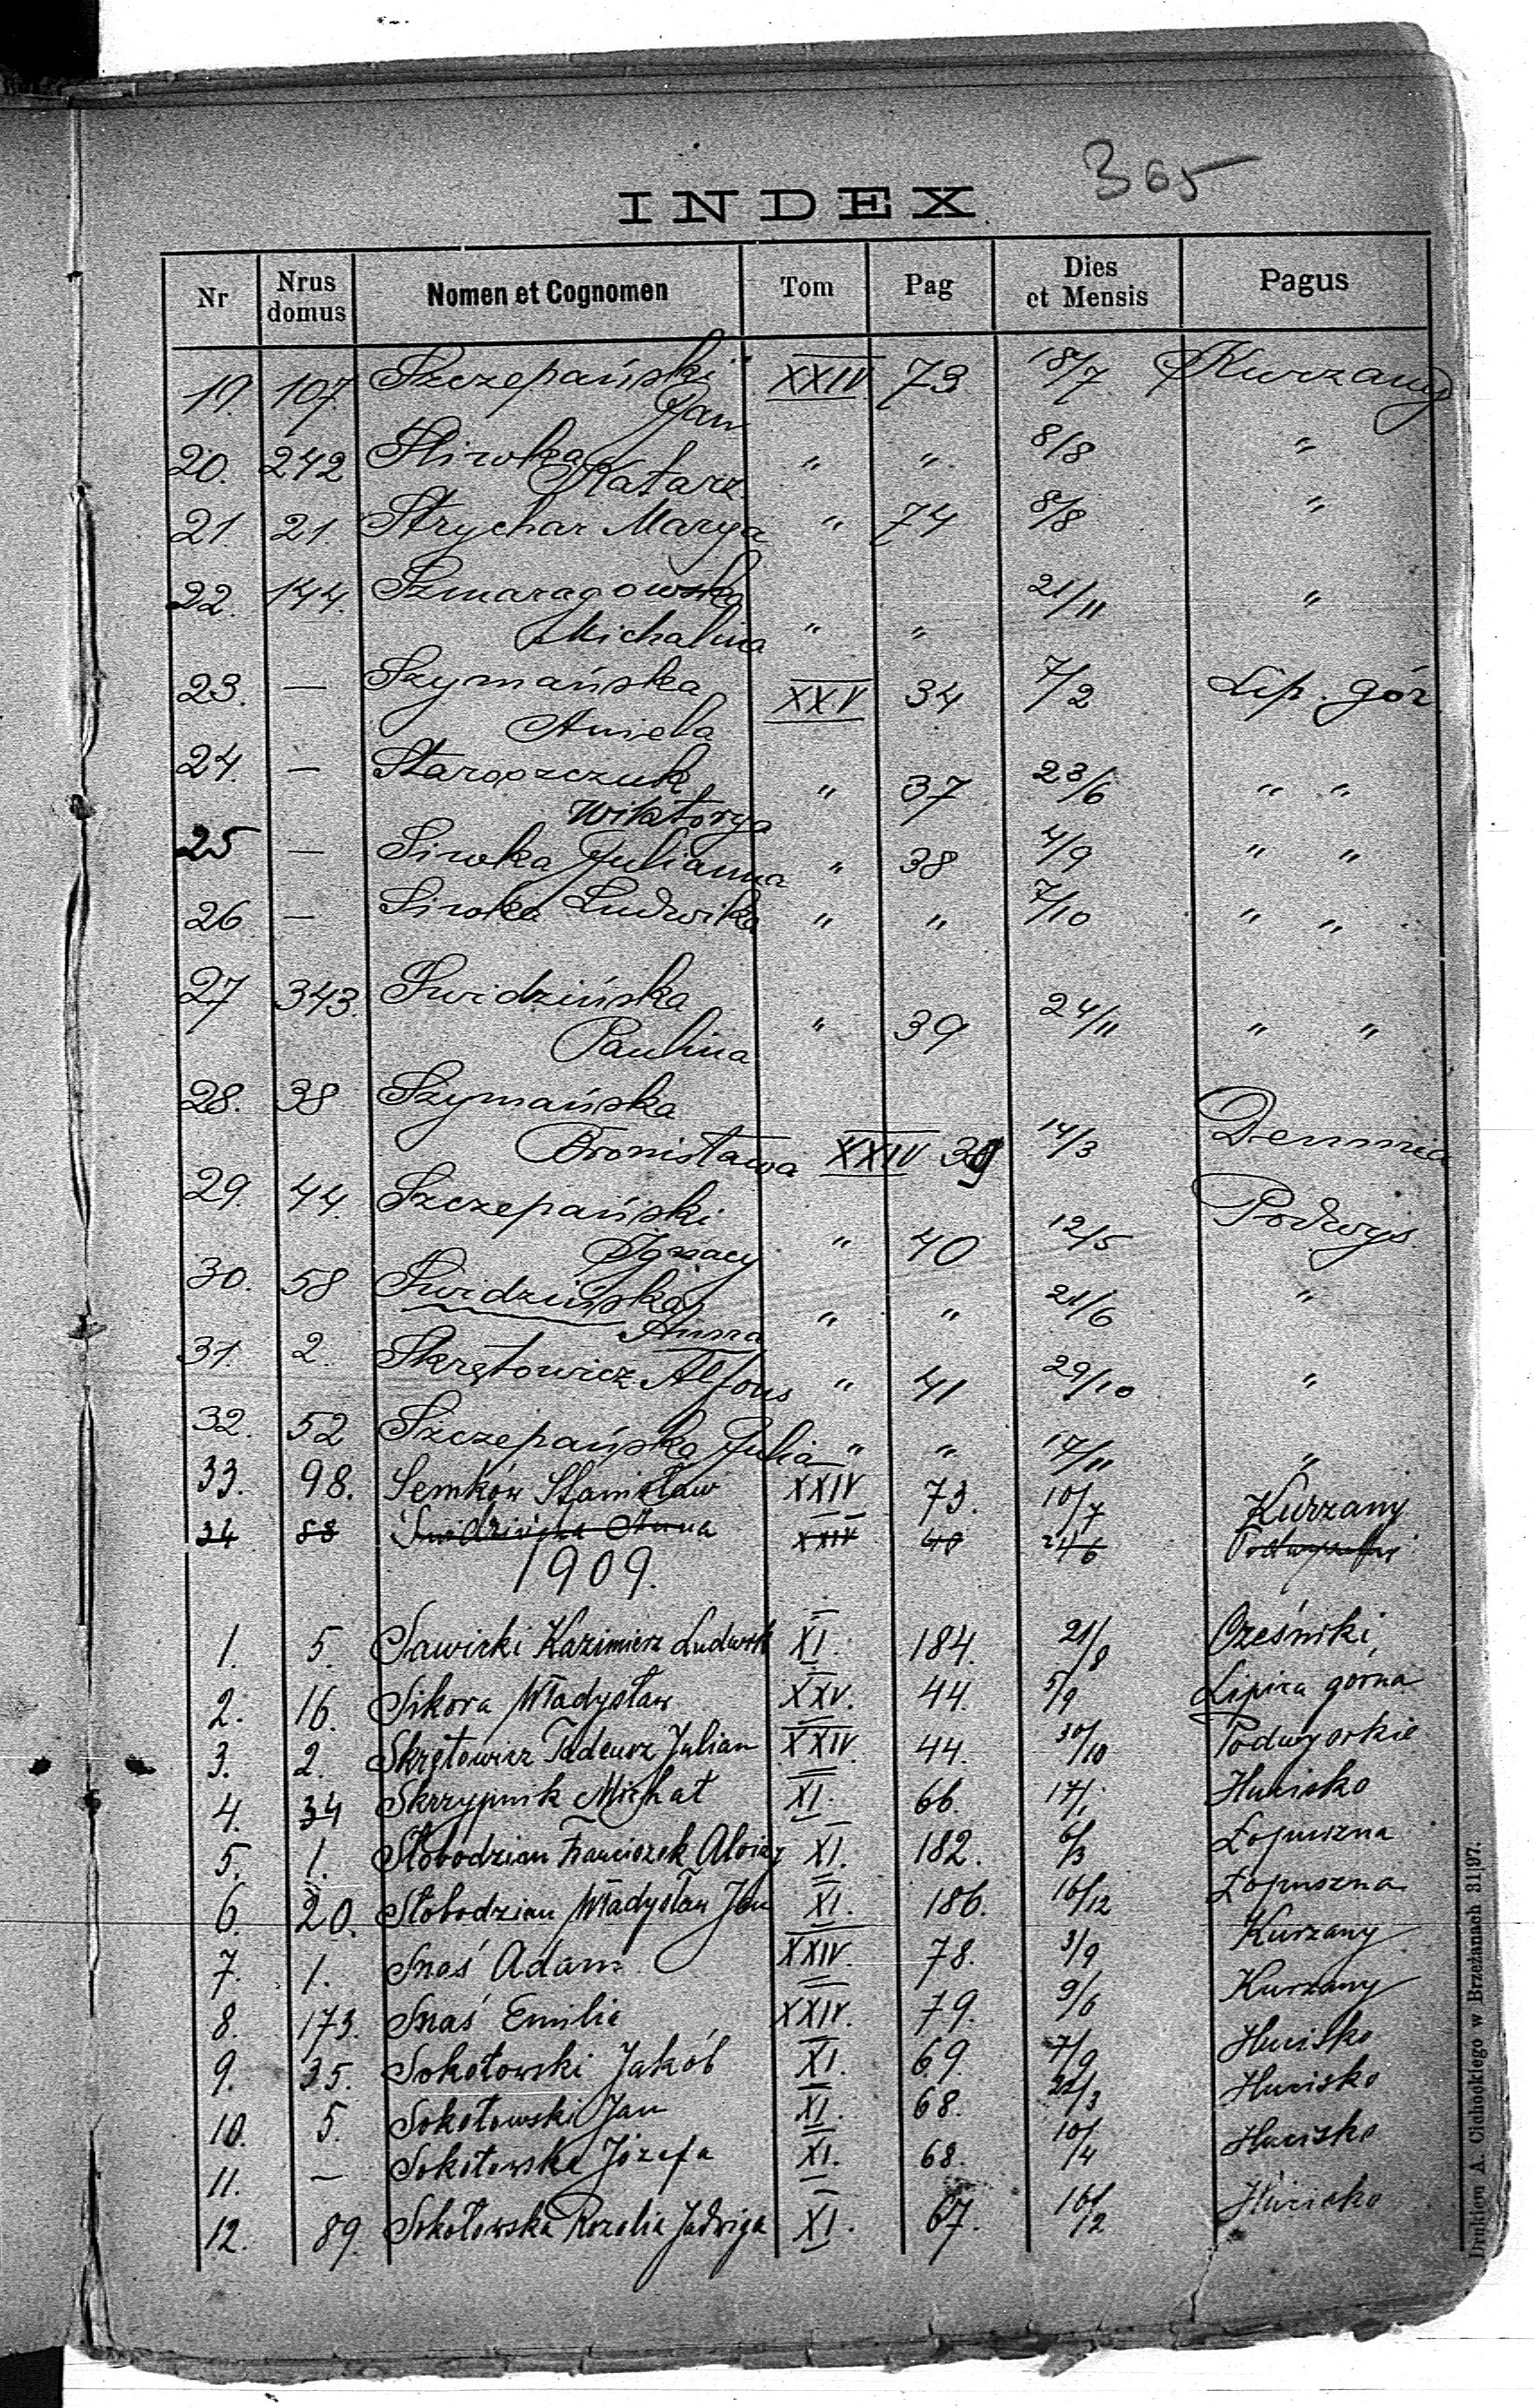 365
INDEX
Nr Nrus domus Nomen et Cognomen Tom Pag Dies et Mensis Pagus
19. 107. Szczepański Jan XXIV 73 18/7 Kurzany
20. 242 Śliwka Katarz. " " 8/8 "
21. 21. Strychar Marya " 74 8/8 "
22. 144. Szmaragowska Michalina " " 21/11 "
23. — Szymańska Aniela XXV 34 7/2 Lip. gór.
24. — Staroszczuk Wiktorya " 37 23/6 " "
25 — Siwka Julianna " 38 4/9 " "
26 — Siwka Ludwika " " 7/10 " "
27 343. Swidzińska Paulina " 39 24/11 " "
28. 38 Szymańska Bronisława XXIV 39 14/3 Demnia
29. 44. Szczepański Ignacy " 40 12/5 Podwys.
30. 58 Swidzińska Anna " " 21/6 "
31. 2. Skrętowicz Alfons " 41 29/10 "
32. 52 Szczepańska Julia " " 17/11 "
33. 98. Semków Stanisław XXIV 73. 10/7 Kurzany
34 88 Swidzińska Anna XXIV 40 21/6
1909.
1. 5. Sawicki Kazimierz Ludwik XI. 184. 21/8 Oześniki
2. 16. Sikora Władysław XXV. 44. 5/9 Lipica górna
3. 2. Skrętowicz Tadeusz Julian XXIV. 44. 30/10 Podwysokie
4. 34 Skrzypnik Michał XI. 66. 17/1. Hucisko
5. 1. Słobodzian Franciszek Aloizy XI. 182. 6/3 Łopuszna
6. 20. Słobodzian Władysław Jan XI. 186. 16/12 Łopuszna
7. 1. Snaś Adam XXIV. 78. 3/9 Kurzany
8. 173. Snaś Emilia XXIV. 79. 9/6 Kurzany
9. 35. Sokołowski Jakób XI. 69. 7/9 Hucisko
10. 5. Sokołowski Jan XI. 68. 22/3 Hucisko
11. — Sokołowska Józefa XI. 68. 10/4 Hucisko
12. 89. Sokołowska Rozalia Jadwiga XI. 67. 16/2 Hucisko
Drukiem A. Cichockiego w Brzeżanach 31|97.